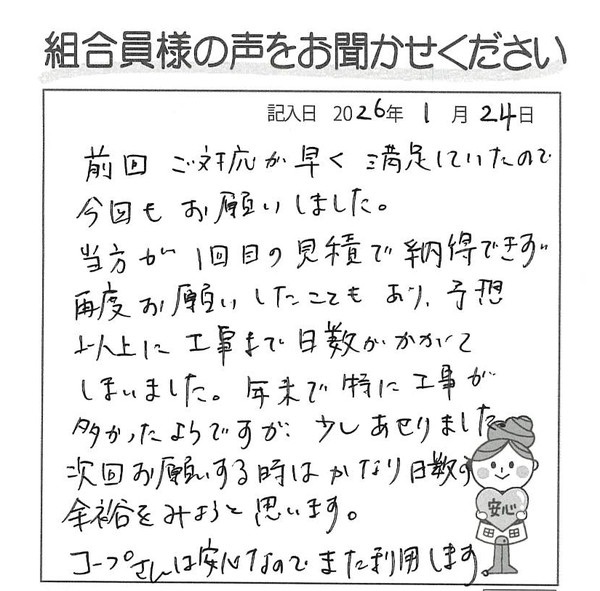 組合員様の声をお聞かせください
記入日 2026年 1月 24日
前回 ご対応が早く 満足していたので
今回も お願いしました。
当方が 1回目の見積で納得できず
再度お願いしたこともあり、予想
以上に 工事まで日数がかかって
しまいました。年末で特に工事が
多かったようですが、少しあせりました。
次回お願いする時はかなり日数の
余裕をみようと思います。
コープさんは安心なのでまた利用します
安心